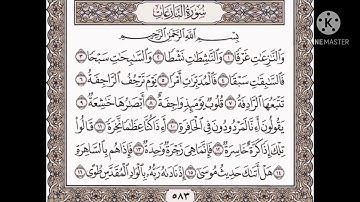 MADE WITH
KINEMASTER
سُورَةُ النَّازِعَاتِ
بِسْمِ اللَّهِ الرَّحْمَٰنِ الرَّحِيمِ
وَالنَّازِعَاتِ غَرْقًا ١ وَالنَّاشِطَاتِ نَشْطًا ٢ وَالسَّابِحَاتِ سَبْحًا ٣
فَالسَّابِقَاتِ سَبْقًا ٤ فَالْمُدَبِّرَاتِ أَمْرًا ٥ يَوْمَ تَرْجُفُ الرَّاجِفَةُ ٦
تَتْبَعُهَا الرَّادِفَةُ ٧ قُلُوبٌ يَوْمَئِذٍ وَاجِفَةٌ ٨ أَبْصَارُهَا خَاشِعَةٌ ٩
يَقُولُونَ أَءِنَّا لَمَرْدُودُونَ فِي الْحَافِرَةِ ١٠ أَءِذَا كُنَّا عِظَامًا نَّخِرَةً ١١ قَالُوا
تِلْكَ إِذًا كَرَّةٌ خَاسِرَةٌ ١٢ فَإِنَّمَا هِيَ زَجْرَةٌ وَاحِدَةٌ ١٣ فَإِذَا هُم بِالسَّاهِرَةِ
١٤ هَلْ أَتَاكَ حَدِيثُ مُوسَىٰ ١٥ إِذْ نَادَاهُ رَبُّهُ بِالْوَادِ الْمُقَدَّسِ طُوًى ١٦
٥٨٣